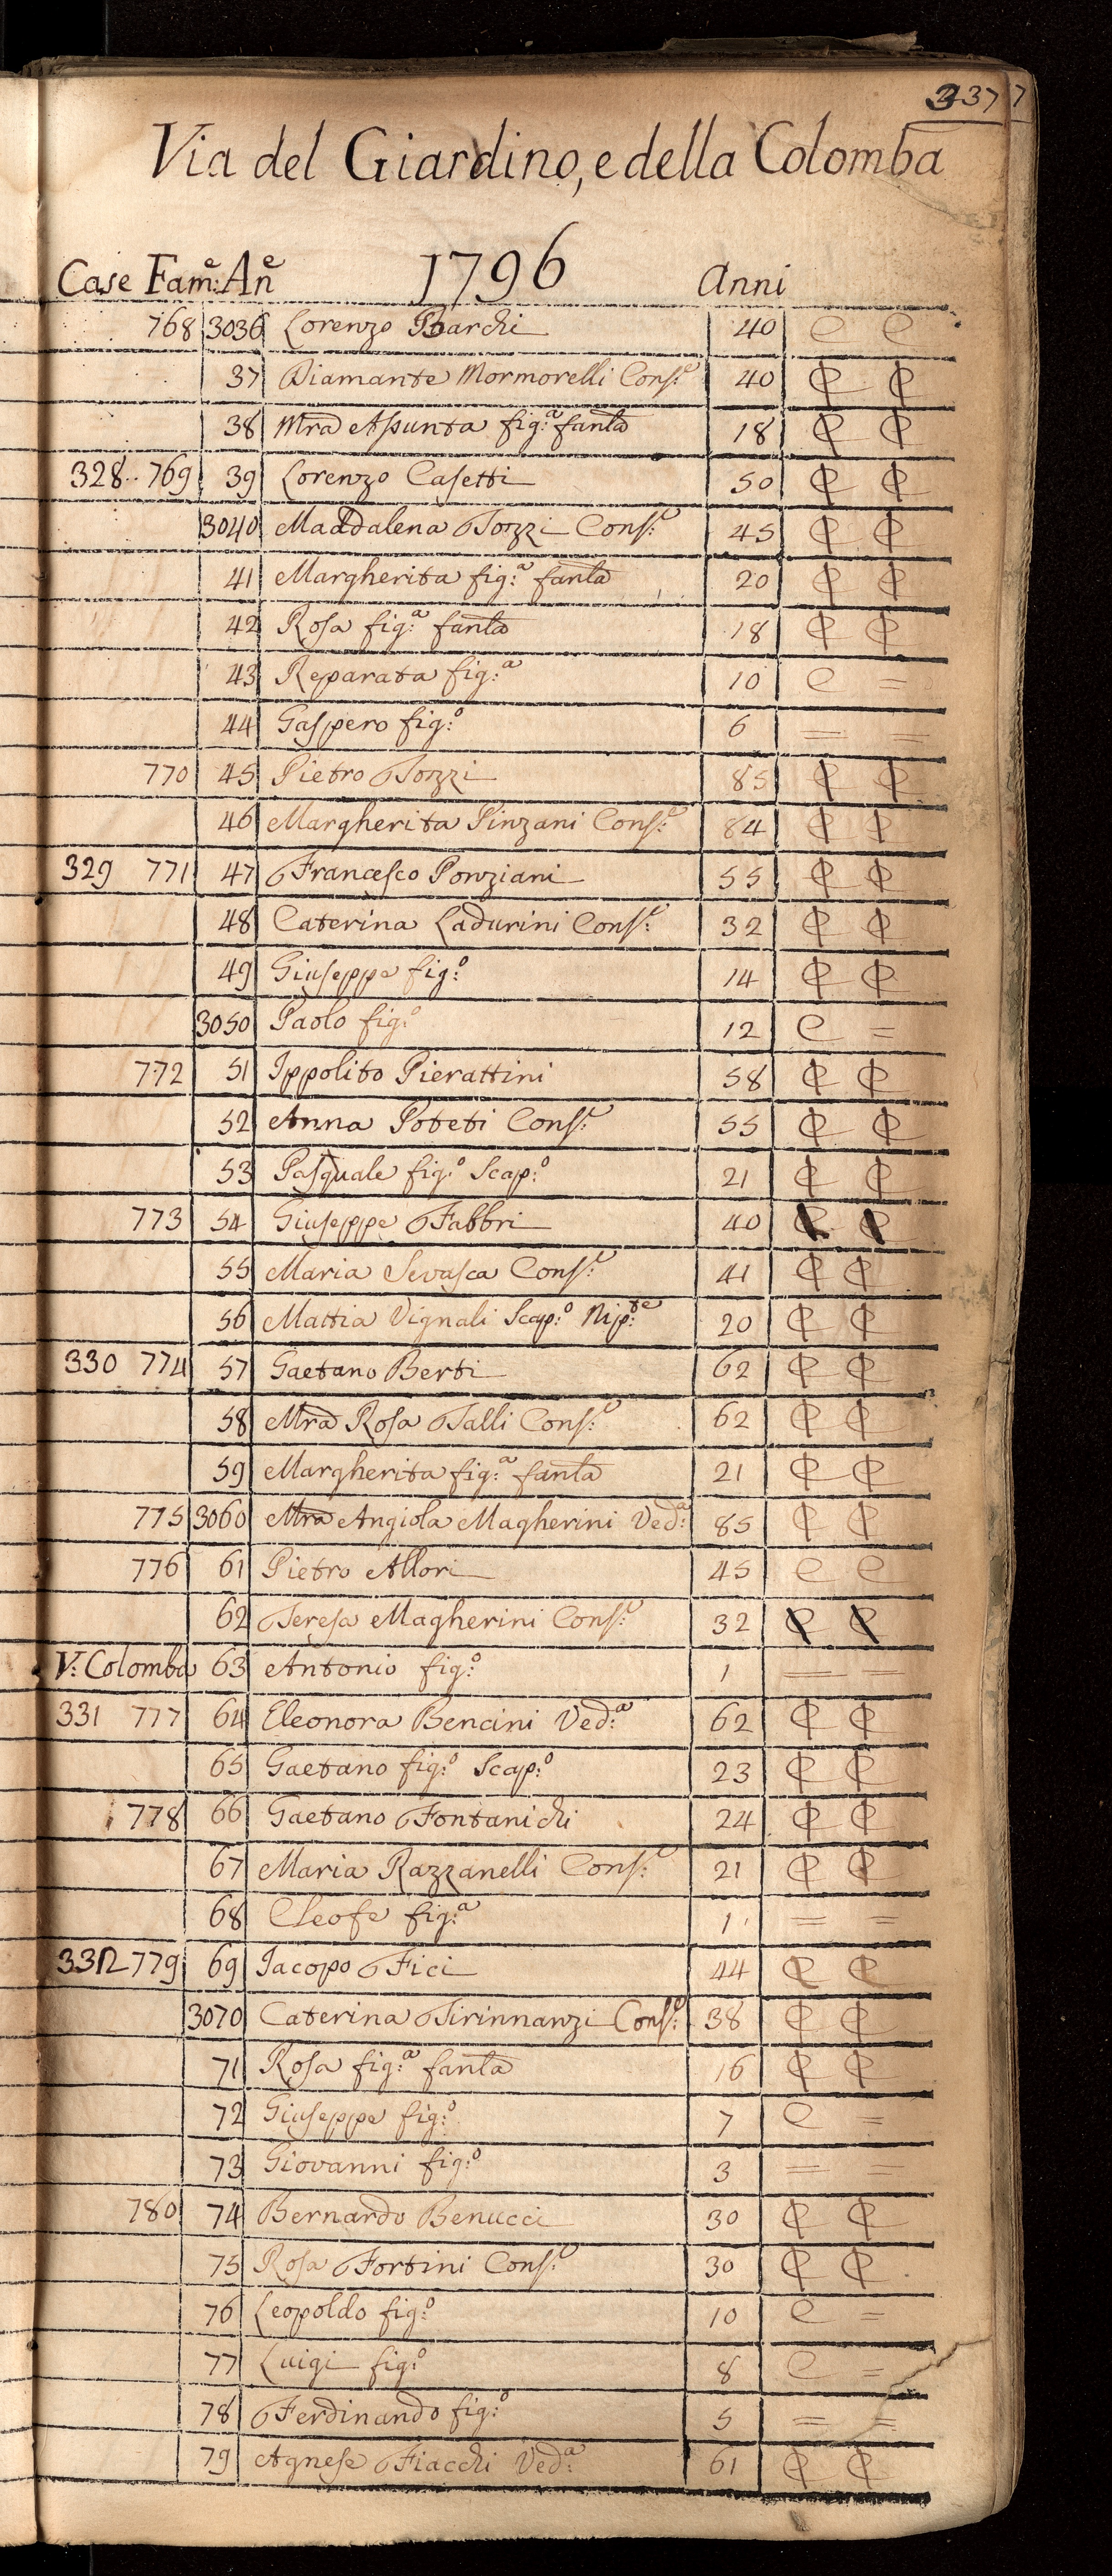 337
7
Via del Giardino, e della Colomba
Case Fam:e An:e 1796 Anni
768 3036 Lorenzo Barchi 40 C C
37 Diamante Mormorelli Cons:e 40 ₵ ₵
38 Mra Assunta fig:a fanla 18 ₵ ₵
328.. 769 39 Lorenzo Casetti 50 ₵ ₵
3040 Maddalena Tozzi Cons:e 45 ₵ ₵
41 Margherita fig:a fanla 20 ₵ ₵
42 Rosa fig:a fanla 18 ₵ ₵
43 Reparata fig:a 10 C =
44 Gaspero fig:o 6 = =
770 45 Pietro Tozzi 85 ₵ ₵
46 Margherita Pinzani Cons:e 84 ₵ ₵
329 771 47 Francesco Ponziani 55 ₵ ₵
48 Caterina Ladurini Cons:e 32 ₵ ₵
49 Giuseppe fig:o 14 ₵ ₵
3050 Paolo fig:o 12 C =
772 51 Ippolito Pierattini 58 ₵ ₵
52 Anna Poteti Cons:e 55 ₵ ₵
53 Pasquale fig:o Scap:o 21 ₵ ₵
773 54 Giuseppe Fabbri 40 ₵ ₵
55 Maria Sevasca Cons:e 41 ₵ ₵
56 Mattia Vignali Scap:o Nip:te 20 ₵ ₵
330 774 57 Gaetano Berti 62 ₵ ₵
58 Mra Rosa Talli Cons:e 62 ₵ ₵
59 Margherita fig:a fanla 21 ₵ ₵
775 3060 Mra Angiola Magherini Ved:a 85 ₵ ₵
776 61 Pietro Allori 45 C C
62 Teresa Magherini Cons:e 32 ₵ ₵
V: Colomba 63 Antonio fig:o 1 = =
331 777 64 Eleonora Bencini Ved:a 62 ₵ ₵
65 Gaetano fig:o Scap:o 23 ₵ ₵
778 66 Gaetano Fontanichi 24 ₵ ₵
67 Maria Razzanelli Cons:e 21 ₵ ₵
68 Cleofe fig:a 1 = =
332 779 69 Jacopo Fici 44 ₵ ₵
3070 Caterina Tirinnanzi Cons:e 38 ₵ ₵
71 Rosa fig:a fanla 16 ₵ ₵
72 Giuseppe fig:o 7 C =
73 Giovanni fig:o 3 = =
780 74 Bernardo Benucci 30 ₵ ₵
75 Rosa Fortini Cons:e 30 ₵ ₵
76 Leopoldo fig:o 10 C =
77 Luigi fig:o 8 C =
78 Ferdinando fig:o 5 = =
79 Agnese Fiacchi Ved:a 61 ₵ ₵